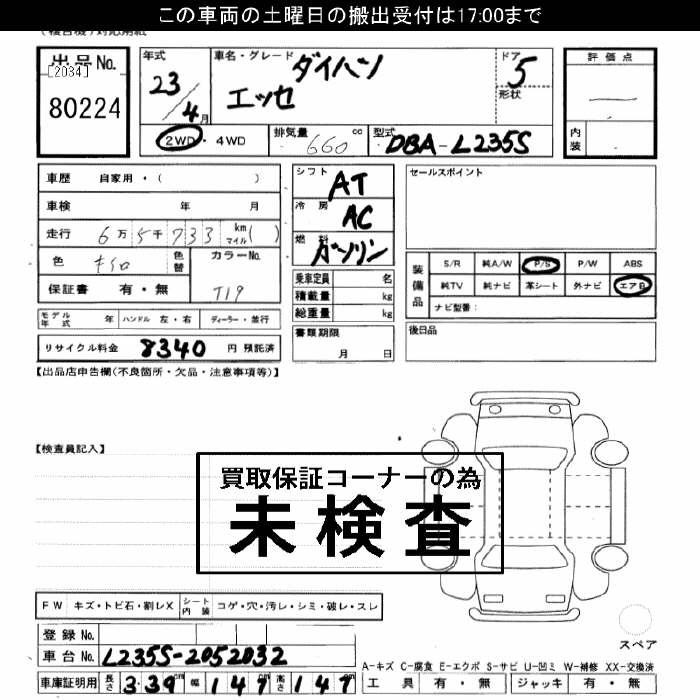 この車両の土曜日の搬出受付は17:00まで
出品No.
[2034]
80224
年式
23/4月
車名・グレード
ダイハツ
エッセ
ドア
5
形状
評価点
内装
2WD・4WD
排気量 660 cc
型式 DBA-L235S
車歴 自家用・( )
車検 年 月
走行 6万5千733 km ( ) マイル
色 キイロ 色替
カラーNo.
T19
保証書 有・無
モデル年式 年 ハンドル 左・右 ディーラー・並行
リサイクル料金 8340 円 預託済
シフト AT
冷房 AC
燃料 ガソリン
乗車定員 名
積載量 kg
総重量 kg
書類期限
月 日
セールスポイント
装備品
S/R 純A/W P/S P/W ABS
純TV 純ナビ 革シート 外ナビ エアB
ナビ型番:
後日品
【出品店申告欄(不良箇所・欠品・注意事項等)】
【検査員記入】
買取保証コーナーの為
未検査
FW キズ・トビ石・割レX シート内装 コゲ・穴・汚レ・シミ・破レ・スレ
登録No.
車台No. L235S-2052032
車庫証明用 長さ 3.39 cm 幅 147 cm 高さ 147
スペア
A-キズ C-腐食 E-エクボ S-サビ U-凹ミ W-補修 XX-交換済
工具 有・無 ジャッキ 有・無